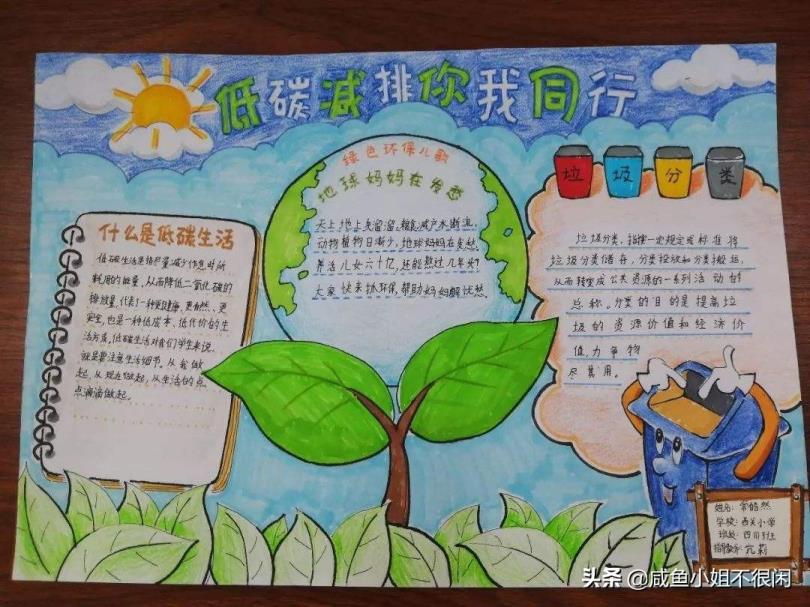 低碳减排你我同行
什么是低碳生活
低碳生活是指尽量减少作息时所
耗用的能量,从而降低二氧化碳的
排放量,代表了一种更健康、更自然、更
安全,也是一种低成本、低代价的生
活方式,低碳生活对我们学生来说,
就是要注意生活细节。从我做
起,从现在做起,从生活的点
点滴滴做起。
绿色环保儿歌
地球妈妈在发愁
天上地上灰溜溜,粮食减产水断流。
动物植物日渐少,地球妈妈在发愁。
养活儿女六十亿,还能熬过几年头?
大家快来协环保,帮助妈妈解忧愁。
垃 圾 分 类
垃圾分类,指按一定规定或标准将
垃圾分类储存,分类投放和分类搬运,
从而转变成公共资源的一系列活动的
总称。分类的目的是提高垃
圾的资源价值和经济价
值,力争物
尽其用。
姓名:常皓然
学校:西关小学
班级:四01班
指导教师:亢莉
头条 @咸鱼小姐不很闲